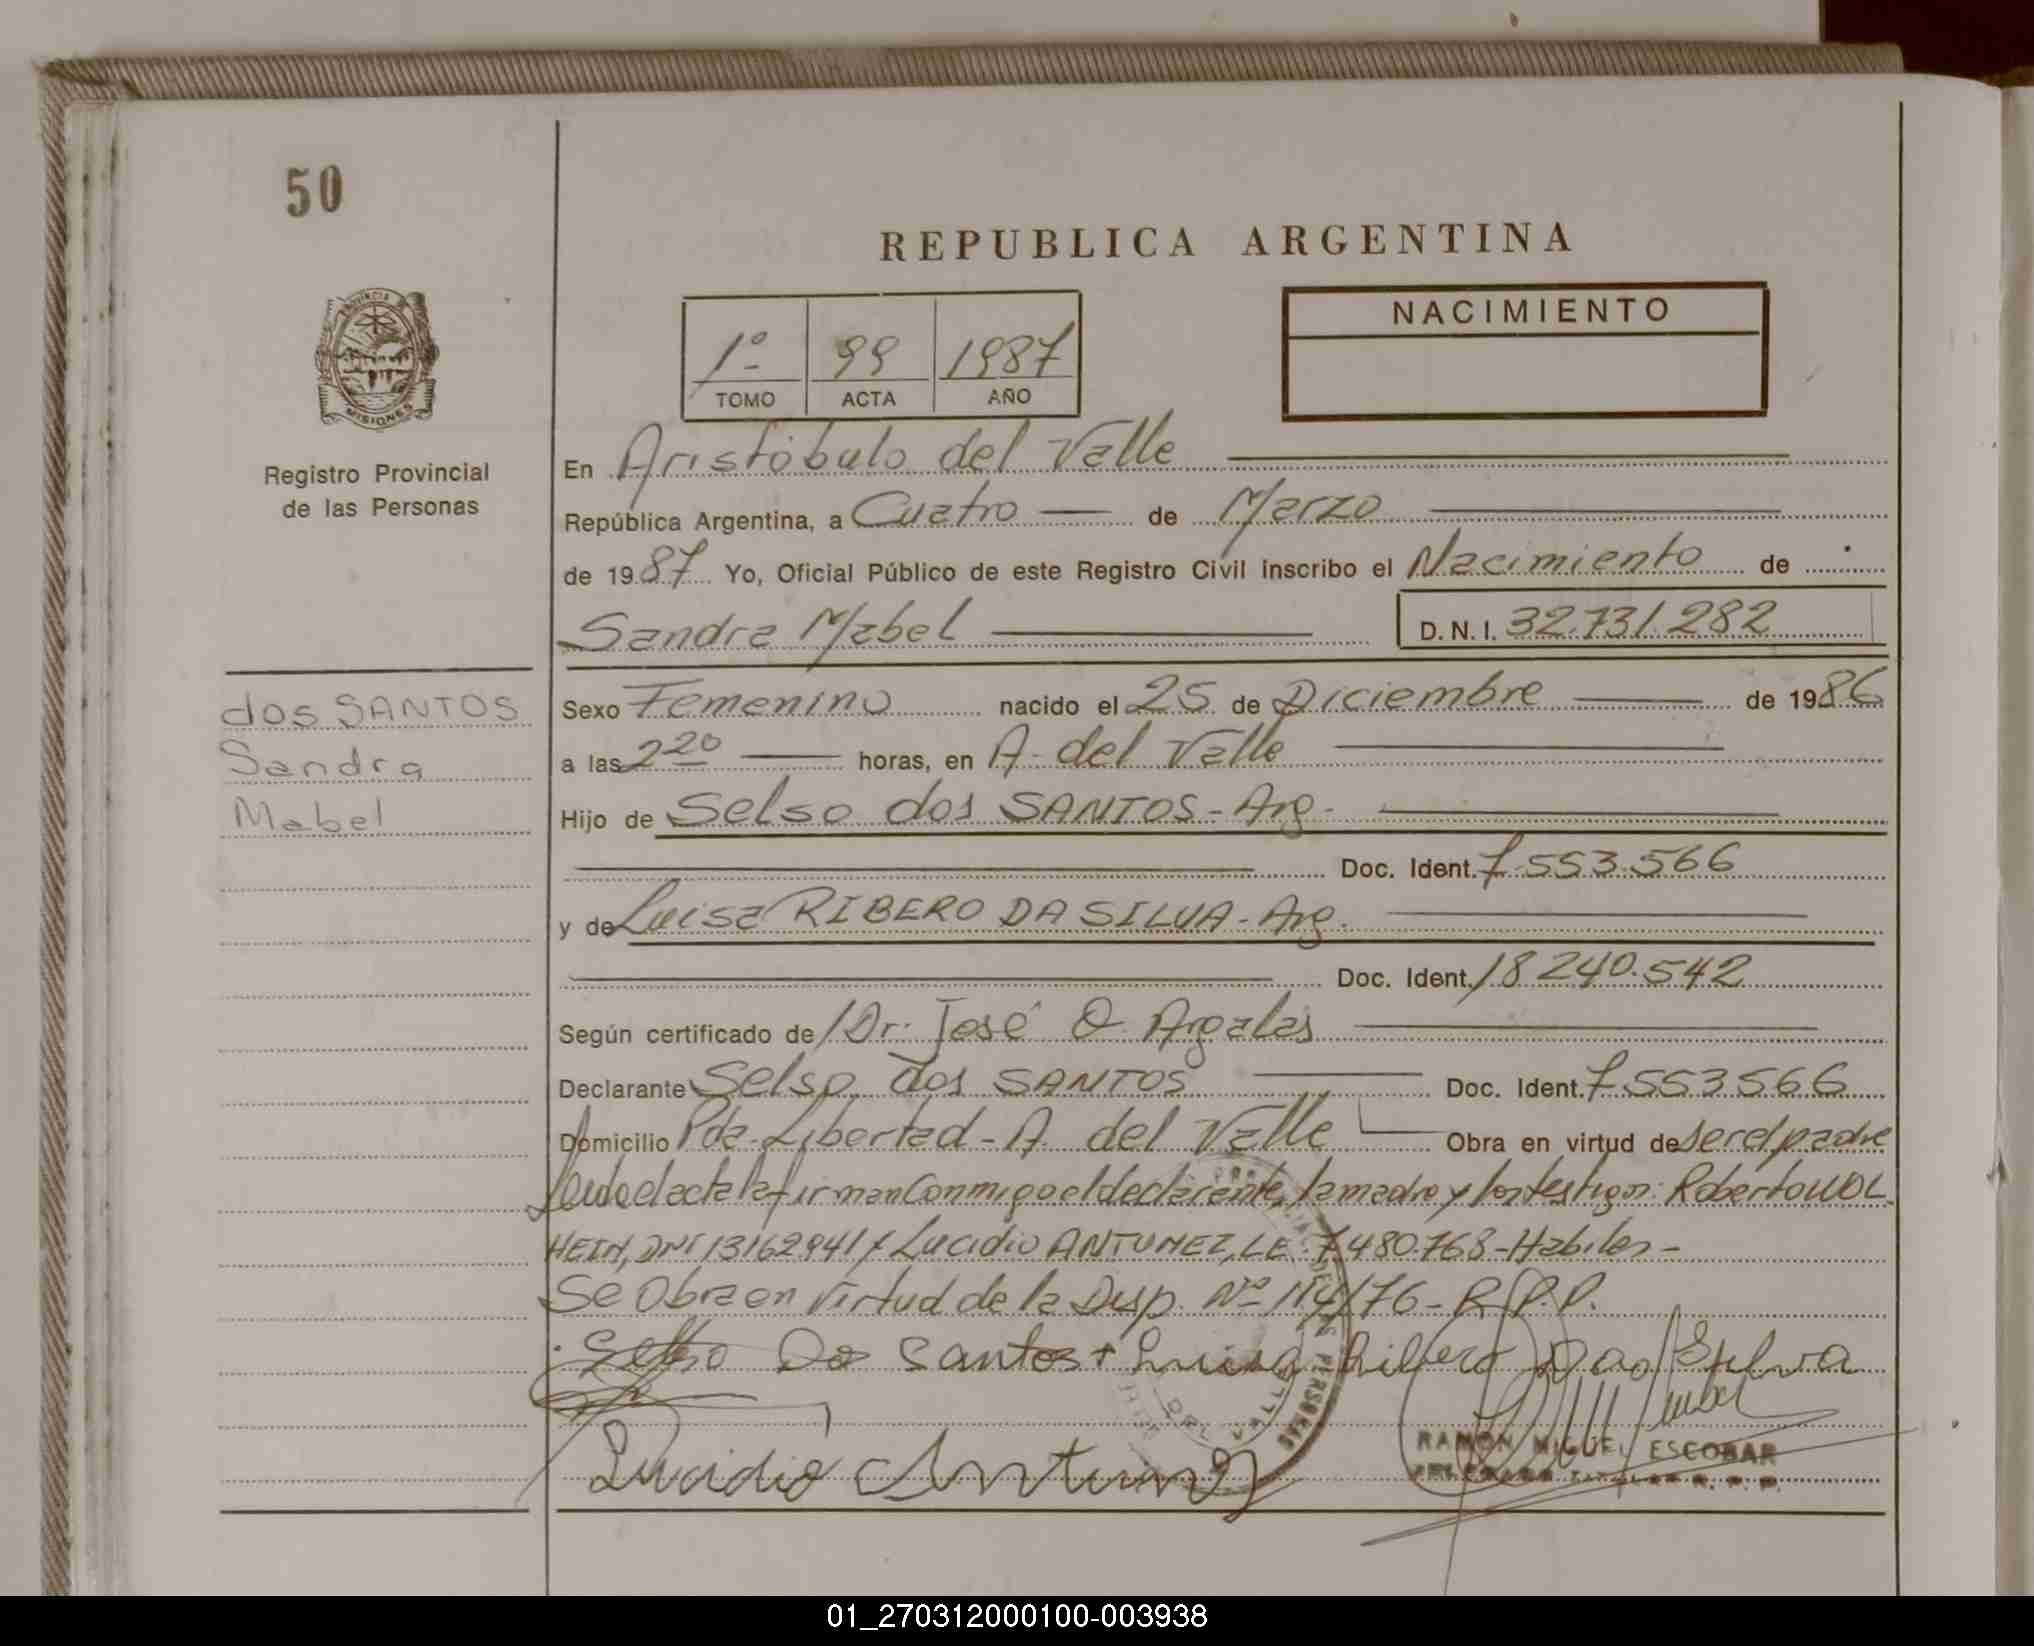 50
REPUBLICA ARGENTINA
NACIMIENTO
1º 99 1987
TOMO ACTA AÑO
PROVINCIA DE
MISIONES
Registro Provincial
de las Personas
En Aristóbulo del Valle
República Argentina, a Cuatro de Marzo
de 1987 Yo, Oficial Público de este Registro Civil inscribo el Nacimiento de
Sandra Mabel D.N.I. 32.731.282
dos SANTOS
Sandra
Mabel
Sexo Femenino nacido el 25 de Diciembre de 1986
a las 2 20 horas, en A. del Valle
Hijo de Selso dos SANTOS - Arg.
Doc. Ident. 7.553.566
y de Luisa RIBERO DA SILVA - Arg.
Doc. Ident. 18 240.542
Según certificado de Dr. José O. Argalas
Declarante Selso dos SANTOS Doc. Ident. 7.553566
Domicilio Pda. Libertad - A. del Valle Obra en virtud de ser el padre
Leida el acta la firman Conmigo el declarante, la madre y los testigos: Roberto WOL
HEIN, DNI 13162941 y Lucidio ANTUNEZ, LE. 7.480.768 - Habiles -
Se Obra en virtud de la Disp. Nº 114/76 - R.P.P.
Selso Do Santos + Luisa Ribero Dao Silva
Lucidio Antunez
DEL VALLE
RAMON MIGUEL ESCOBAR
01_270312000100-003938